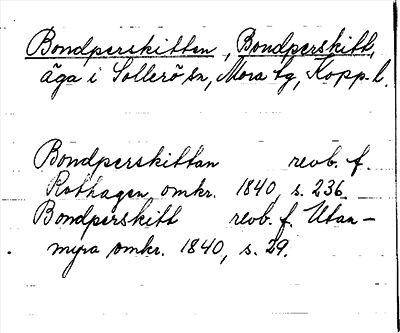 Bondperskitten, Bondperskitt,
äga i Sollerö sn, Mora tg, Kopp. l.
Bondperskittan revb. f.
Rothagen omkr. 1840, s. 236.
Bondperskitt revb. f. Utan-
myra omkr. 1840, s. 29.